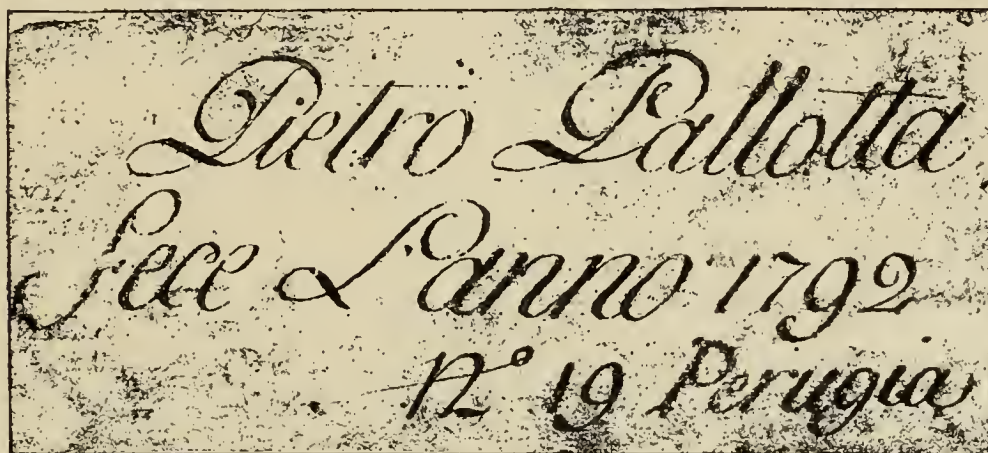 Pietro Pallotta
fece L'anno 1792
N° 19 Perugia